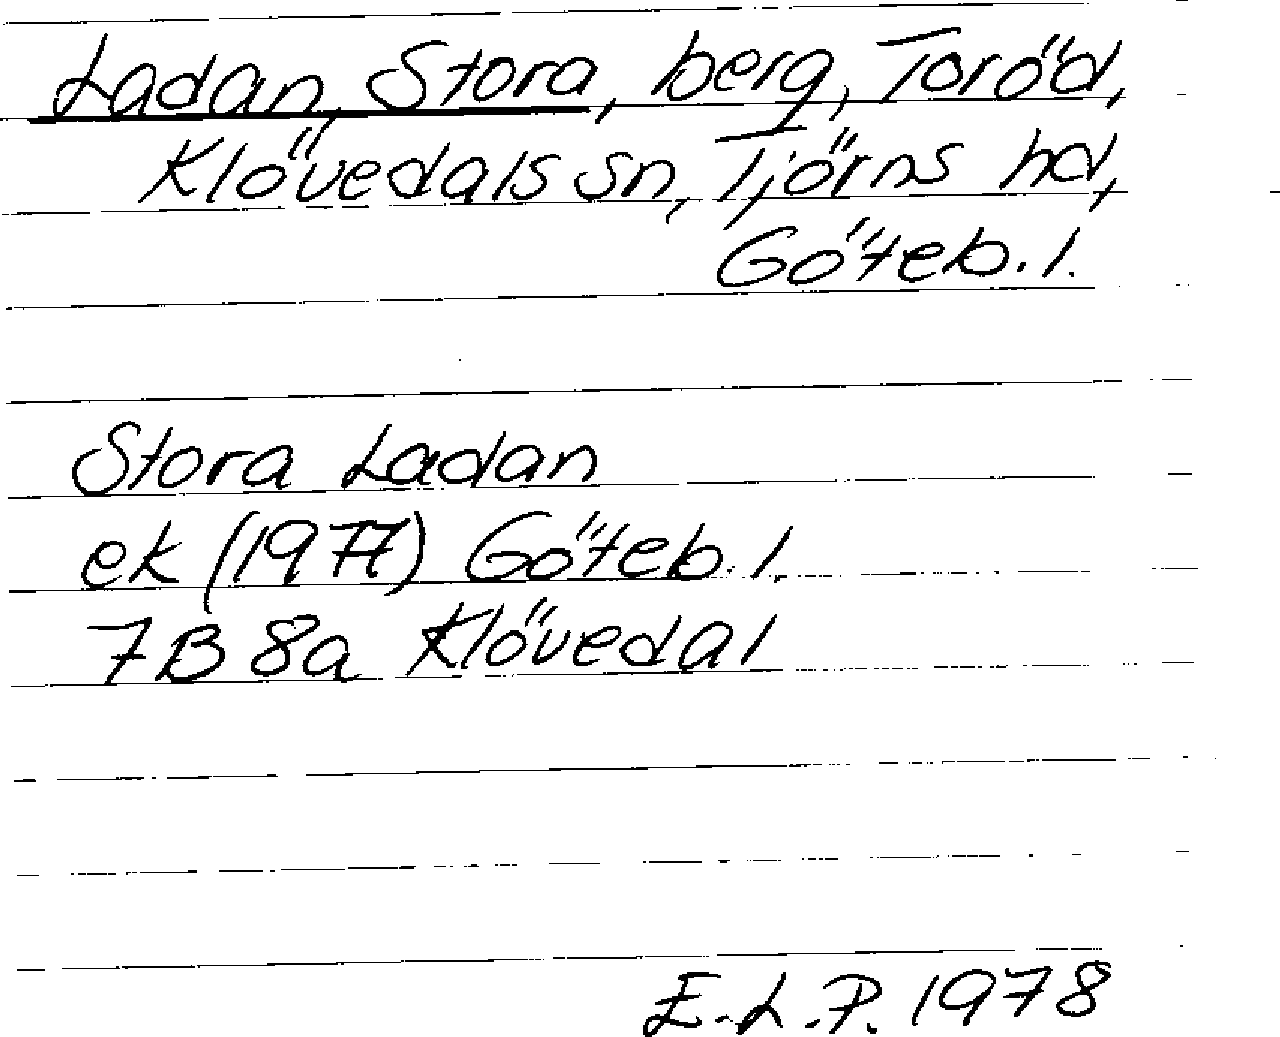 Ladan, Stora, berg, Toröd,
Klövedals sn, Tjörns hd,
Göteb. l.
Stora Ladan
ek (1977) Göteb. l.
7B 8a Klövedal
E.L.P. 1978